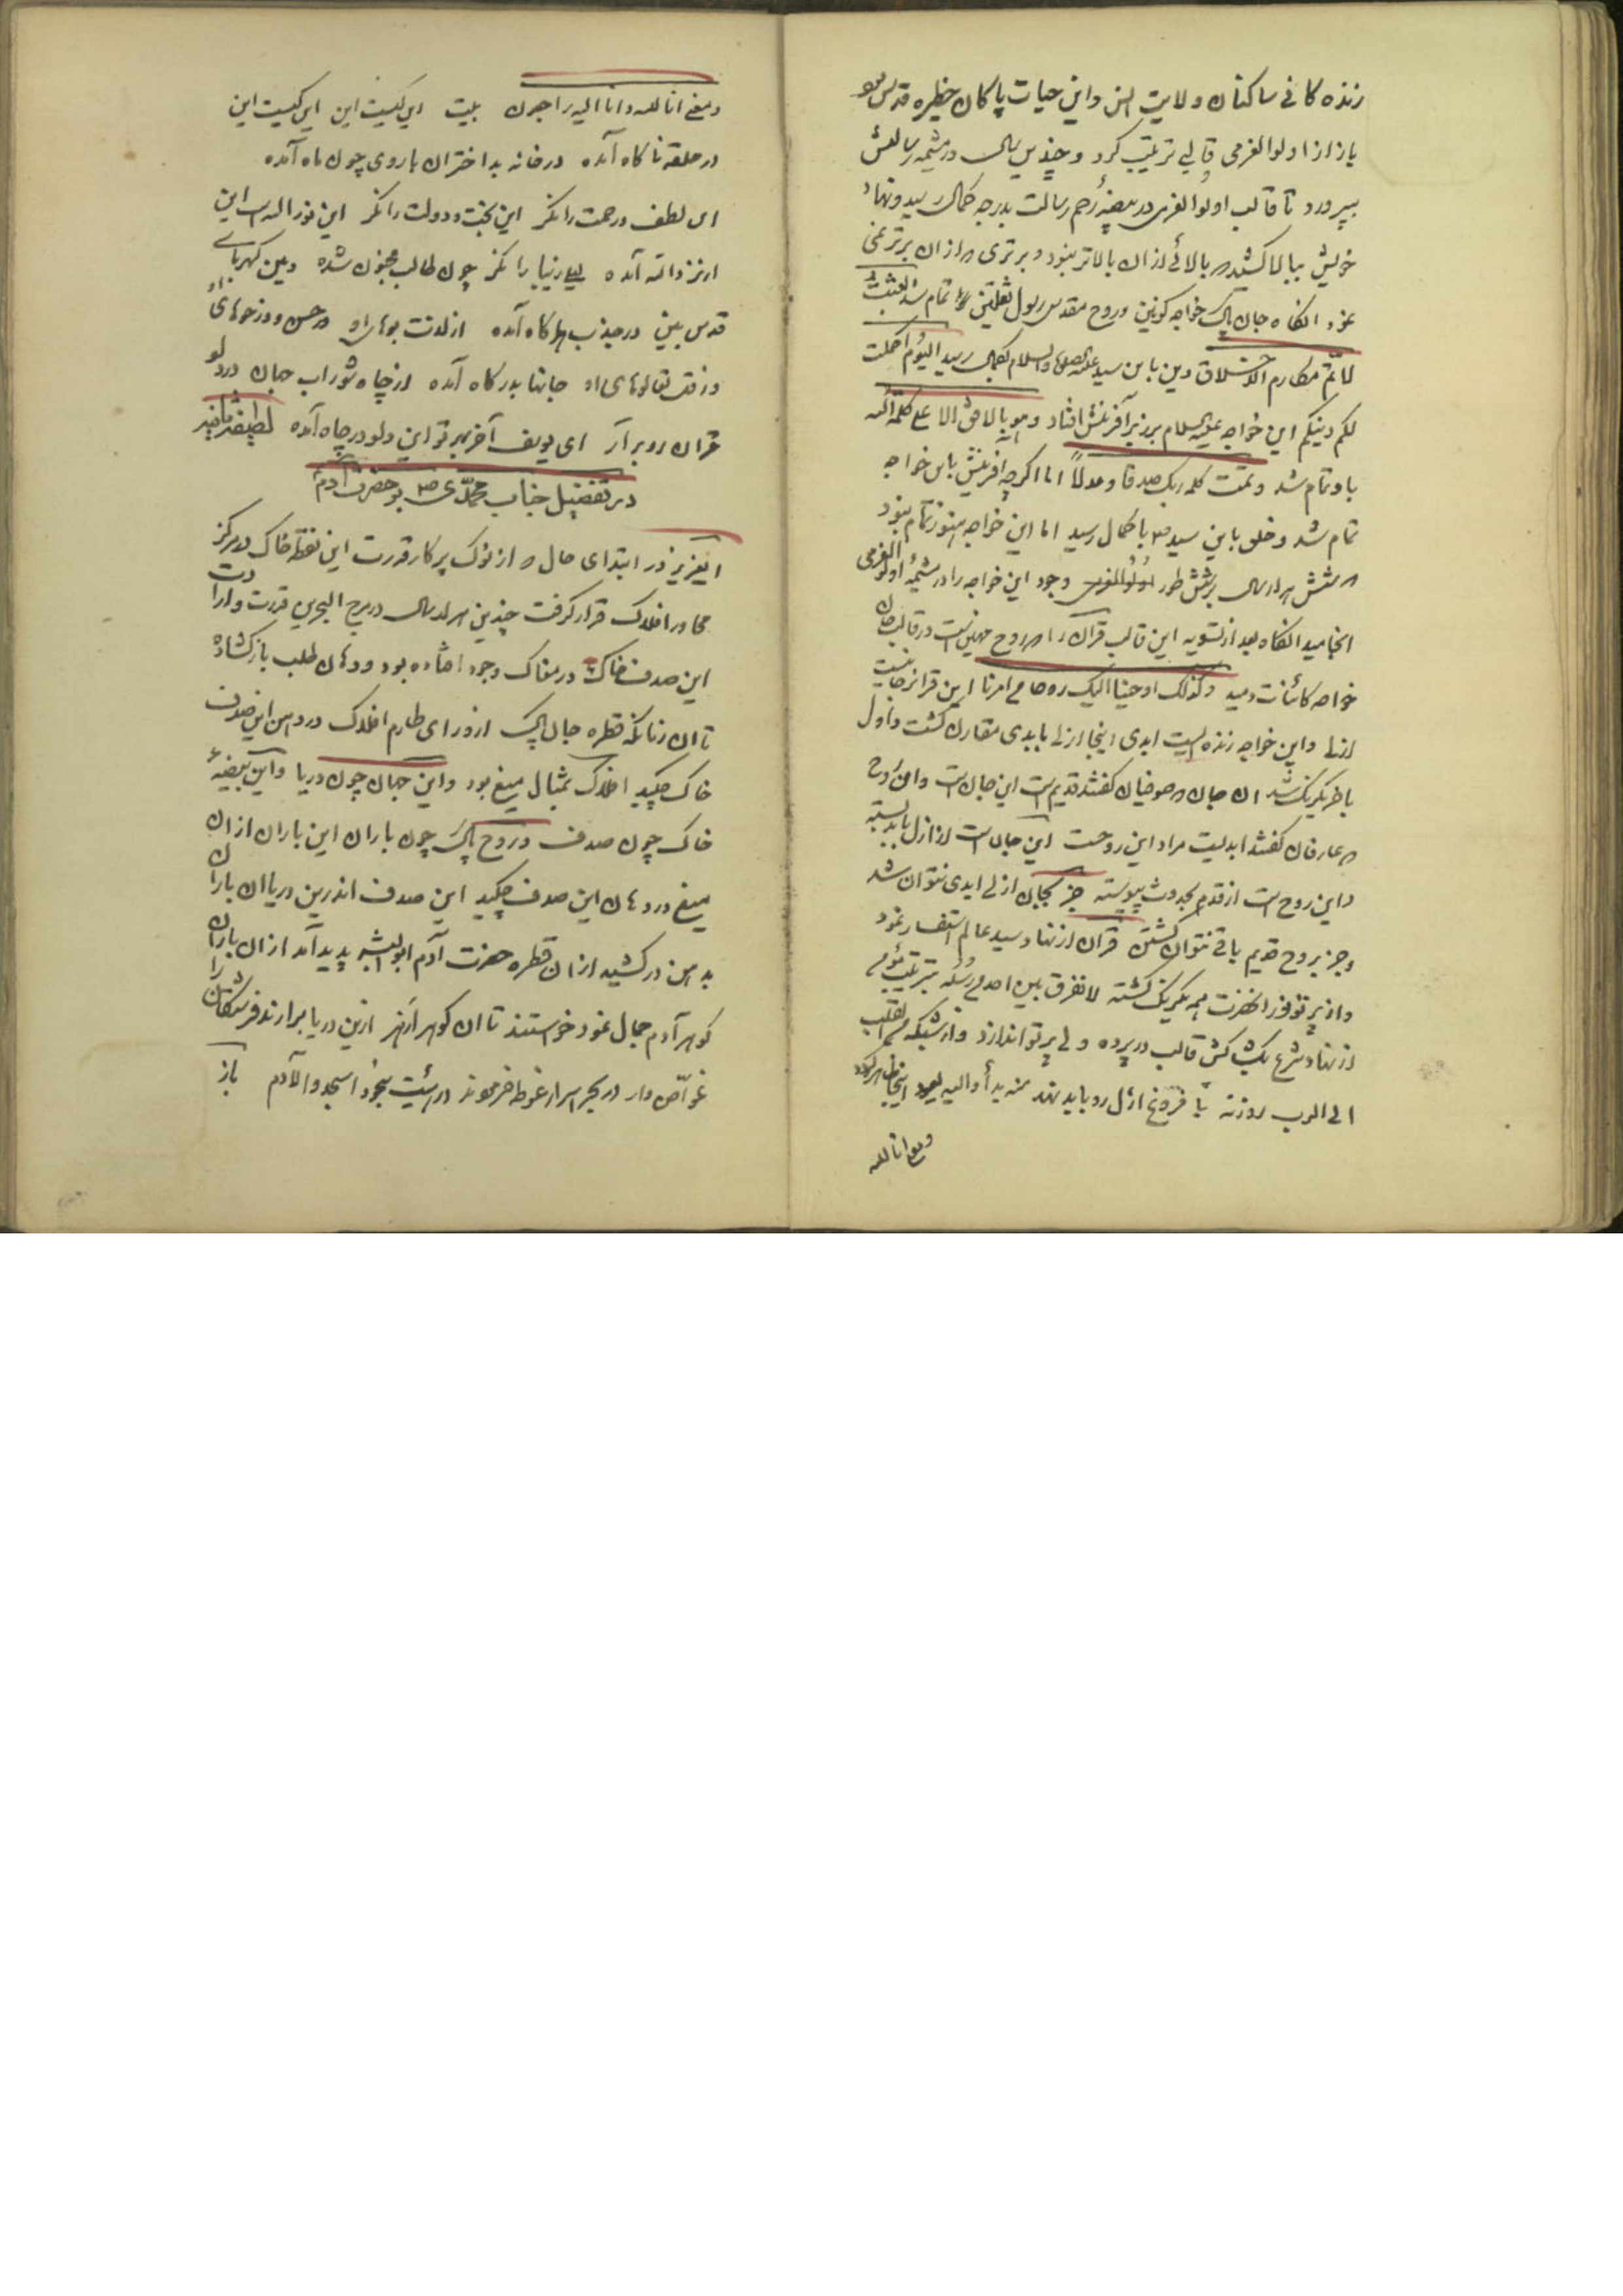 زنده کانی ساکنان ولایت انس واین حیات پاکان حظیره قدس بود
باز از اولوالعزمی قالبی ترتیب کرد و چندین سال در مشیمه رسالتش
بپرورد تا قالب اولوالعزمی در بیضهٔ رحم رسالت بدرجه کمال رسید ونهاد
خویش ببالا کشید که بالائی از ان بالاتر نبود و برتری که از ان برتر نمی
نمود انکاه جان پاک خواجه کونین وروح مقدس رسول ثقلین تمام شد بعثت
لاتمم مکارم الاخلاق دین باین سید علیه الصلوة والسلام بکمال رسید الیوم اکملت
لکم دینکم این خواجه علیه السلام برزبر آفرینش افتاد وهو بالافق الاعلی کلمة الله
باو تمام شد وتمت کلمة ربک صدقا وعدلاً اما اکرچه افرینش باین خواجه
تمام شد وخلق باین سید باکمال رسید اما این خواجه هنوز تمام نبود
که شش هزار سال برشش طور وجود این خواجه را در مشیمهٔ اولوالعزمی
انجامید انکاه بعد از تسویه این قالب قران را که روح مهین است در قالب جان
خواجه کائنات دمید وکذلک اوحینا الیک روحا من امرنا این قران جانیست
ازلی واین خواجه زنده ایست ابدی اینجا ازلی بابدی مقارن کشت واول
باخر یکرنک شد ان جان که صوفیان کفتند قدیم است این جان است وان روح
که عارفان کفتند ابدیست مراد این روحست این جان است از ازل بابد پیوسته
واین روح است از قدم بحدوث پیوسته جز بجان ازلی ابدی نتوان شد
وجز بروح قدیم باقی نتوان کشتن قران از نهاد سید عالم استفسار نمود
واز پرتو نور انحضرت همه یکرنک کشته لا نفرق بین احد من رسله بترتیب
از نهاد شرع یک کش قالب در پرده ولی پرتو اندازد واز شبکه من القلب
الی الرب روزنه با فروغ ازل رو باید نهد منه بدأ والیه یعود اینجا ظاهر کردد
ومعنی انا لله
ومعنی انا لله وانا الیه راجعون بیت این کیست این این کیست این
در حلقه ناکاه آمده در خانه بداختران با روی چون ماه آمده
این لطف ورحمت را نکر این بخت ودولت را نکر این نور اللهی است این
از نزد الله آمده لیلی زیبا را نکر چون طالب مجنون شده وین کهربای
قدس بین در جذب هر کاه آمده از لذت بوهای او در حسن ودر خوهای او
وز قل تعالوهای او جانها بدرکاه آمده از چاه شوراب جهان در دلو
قران رو بر آر ای یوسف آخر بهر تو این دلو در چاه آمده
در تفضیل جناب محمدی بر حضرت آدم
ایعزیز در ابتدای حال که از نوک پرکار قدرت این نقطه خاک در مرکز
محاور افلاک قرار کرفت چندین هزار سال در مرج البحرین قدرت وارادت
این صدف خاک در مغاک وجود افتاده بود ودهان طلب باز کشاده
تا ان زمانکه قطره جان پاک از ورای طارم افلاک در دهن این صدف
خاک چکید افلاک بمثال میغ بود واین جهان چون دریا واین بیضهٔ
خاک چون صدف وروح پاک چون باران این باران از ان
میغ در دهان این صدف چکید این صدف اندرین دریا ان باران
بدامن در کشید از ان قطره حضرت آدم ابوالبشر پدید آمد از ان باران
کوهر آدم جمال نمود خواستند تا ان کوهر ازهر ازین دریا برارند فرشتکان را
غوّاص وار در بحر اسرار غوطه فرمودند درایت سجود اسجدوا لآدم باز